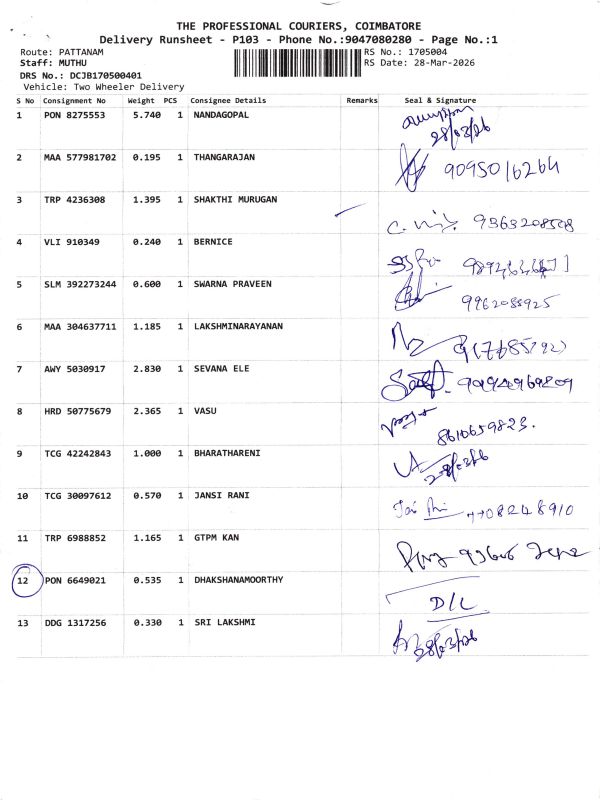 THE PROFESSIONAL COURIERS, COIMBATORE
Delivery Runsheet - P103 - Phone No.:9047080280 - Page No.:1
Route: PATTANAM RS No.: 1705004
Staff: MUTHU RS Date: 28-Mar-2026
DRS No.: DCJB170500401
Vehicle: Two Wheeler Delivery
S No Consignment No Weight PCS Consignee Details Remarks Seal & Signature
1 PON 8275553 5.740 1 NANDAGOPAL
28/03/26
2 MAA 577981702 0.195 1 THANGARAJAN 9095016264
3 TRP 4236308 1.395 1 SHAKTHI MURUGAN
9363208508
4 VLI 910349 0.240 1 BERNICE
5 SLM 392273244 0.600 1 SWARNA PRAVEEN
9962088925
6 MAA 304637711 1.185 1 LAKSHMINARAYANAN
7 AWY 5030917 2.830 1 SEVANA ELE
8 HRD 50775679 2.365 1 VASU
8610659823.
9 TCG 42242843 1.000 1 BHARATHARENI
28/03/26
10 TCG 30097612 0.570 1 JANSI RANI
7708248910
11 TRP 6988852 1.165 1 GTPM KAN
12 PON 6649021 0.535 1 DHAKSHANAMOORTHY
D/L
13 DDG 1317256 0.330 1 SRI LAKSHMI
28/03/26